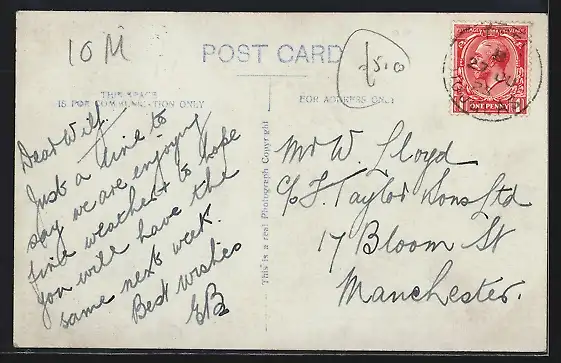 10 M
POST CARD
£5.0
THIS SPACE
IS FOR COMMUNICATION ONLY
FOR ADDRESS ONLY
Dear Wilf.
Just a line to
say we are enjoying
fine weather & hope
you will have the
same next week.
Best wishes
EB
This is a real Photograph Copyright
Mr W. Lloyd
c/o F. Taylor Sons Ltd
17 Bloom St
Manchester.
POSTAGE REVENUE
ONE PENNY